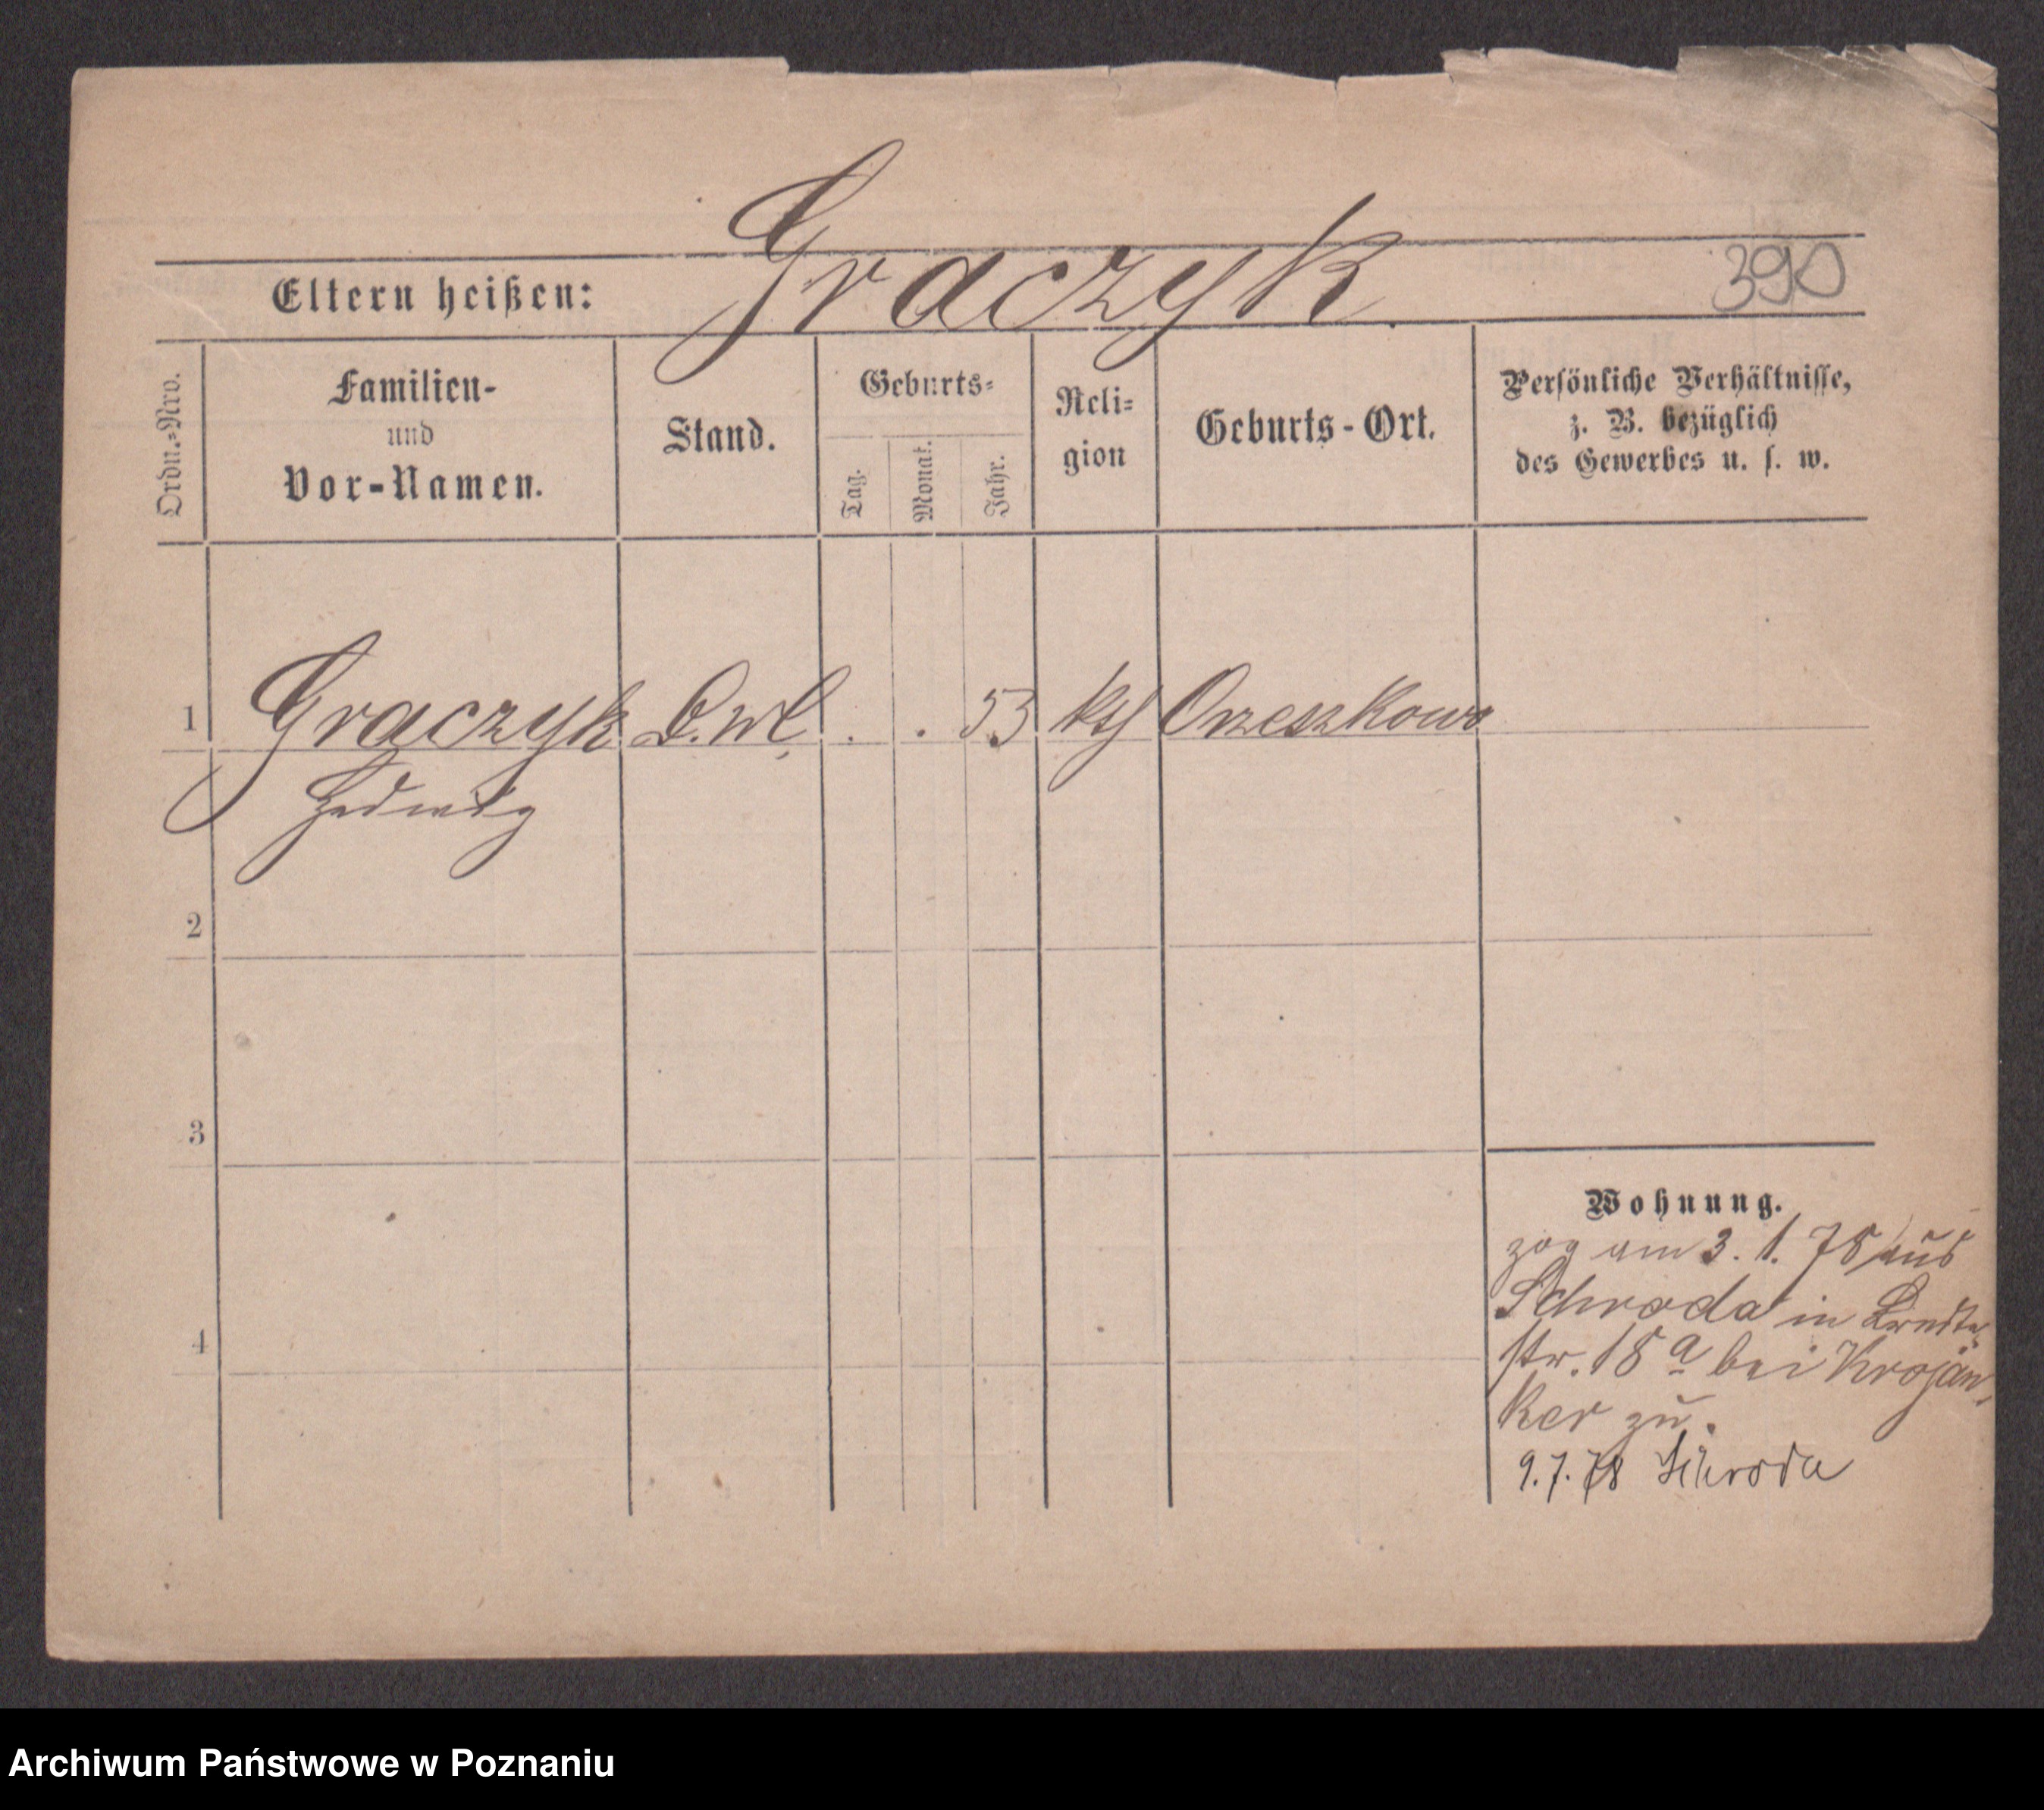 Graczyk.
Eltern heißen:
390
Ordn.-Nro.
Familien-
und
Vor-Namen.
Stand.
Geburts-
Tag.
Monat.
Jahr.
Reli-
gion
Geburts-Ort.
Persönliche Verhältnisse,
z. B. bezüglich
des Gewerbes u. s. w.
1
Graczyk . . 53 Orzeszkowo
Hedwig
2
3
4
Wohnung.
zog am 3. 1. 78 aus
Schroda in
str. 18 a bei Krojän-
ker zu.
9. 7. 78 Schroda
Archiwum Państwowe w Poznaniu